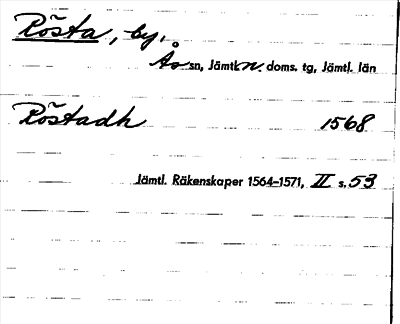 Rösta, by,
Ås sn, Jämtl. n. doms. tg, Jämtl. län
Röstadh 1568
Jämtl. Räkenskaper 1564–1571, II s. 53